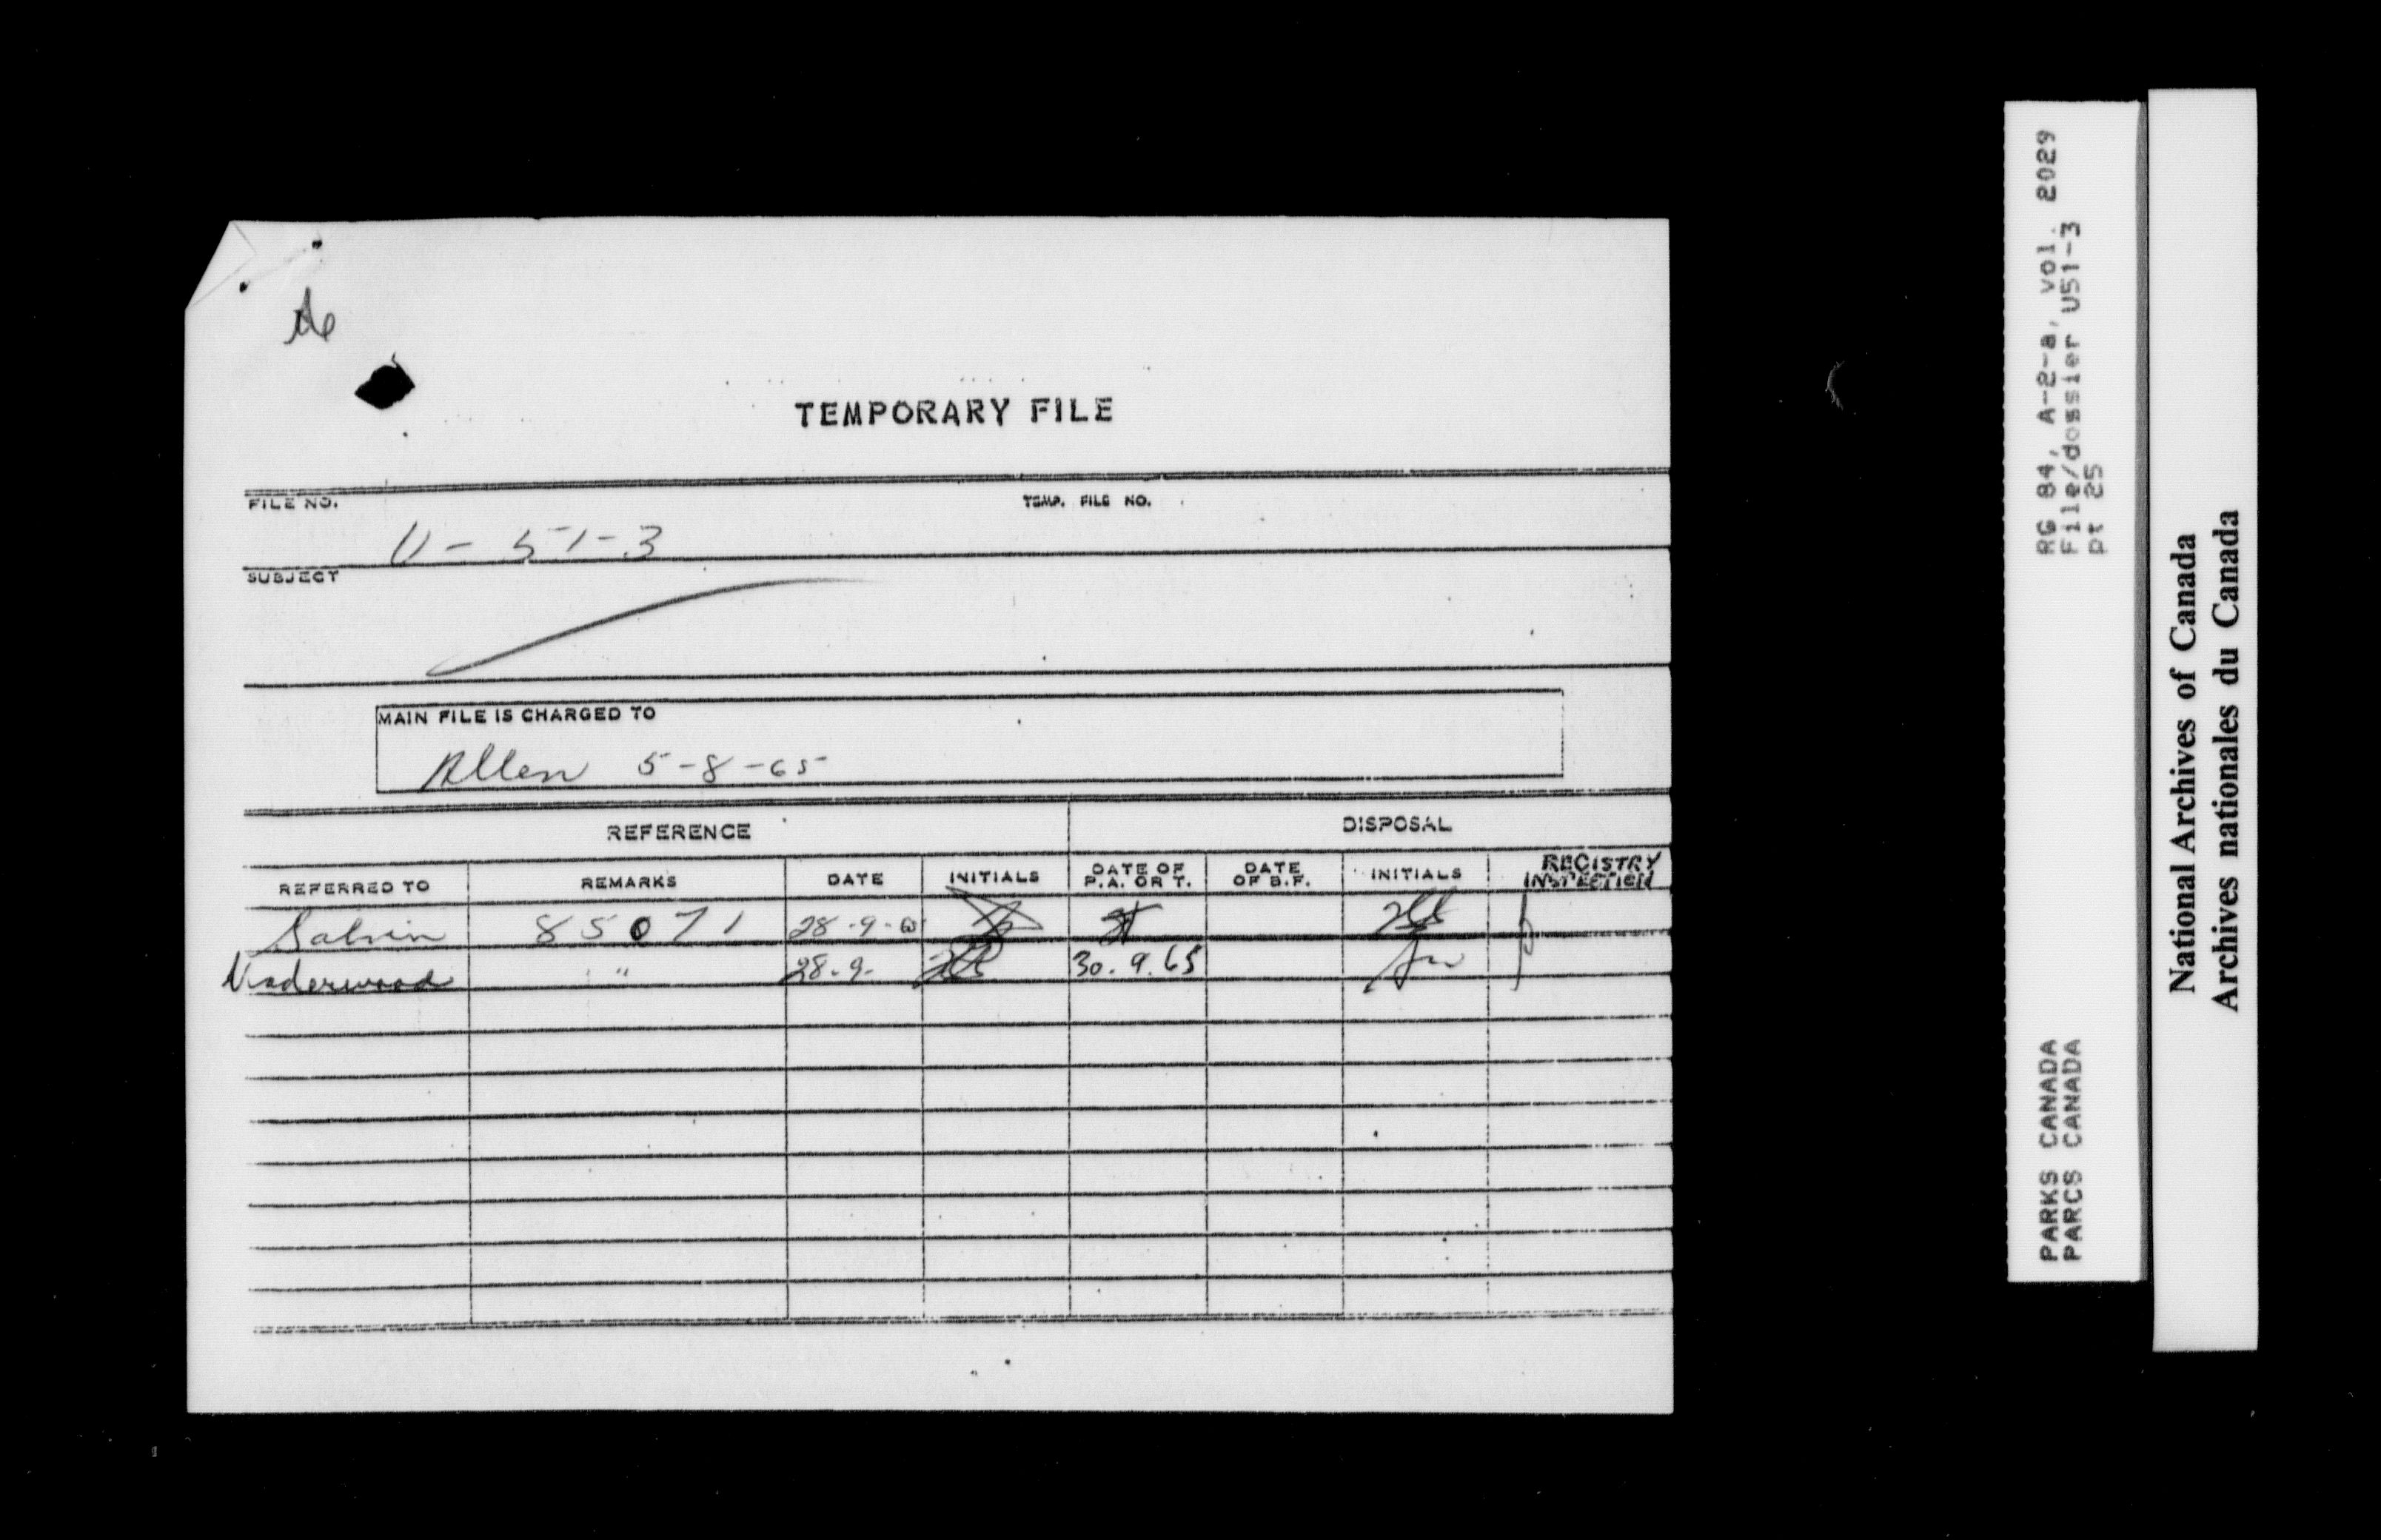 TEMPORARY FILE
FILE NO. TEMP. FILE NO.
U - 51-3
SUBJECT
MAIN FILE IS CHARGED TO
Allen 5-8-65
REFERENCE DISPOSAL
REFERRED TO REMARKS DATE INITIALS DATE OF P.A. OR T. DATE OF B.F. INITIALS REGISTRY INSPECTION
85071 28-9-65
Underwood " 28.9. 30.9.65
RG 84, A-2-a, vol. 2029
File/dossier U51-3
pt 25
PARKS CANADA
PARCS CANADA
National Archives of Canada
Archives nationales du Canada